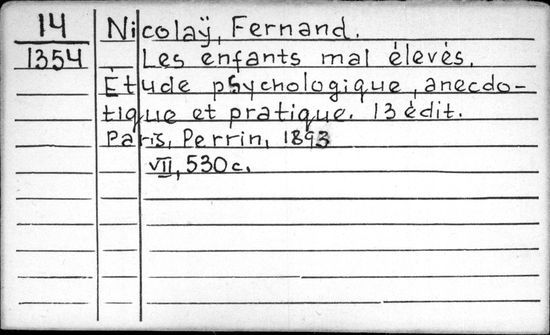 14
1354
Nicolaÿ, Fernand.
Les enfants mal élevés.
Étude psychologique, anecdo-
tique et pratique. 13 édit.
Paris, Perrin, 1893
VII, 530 c.